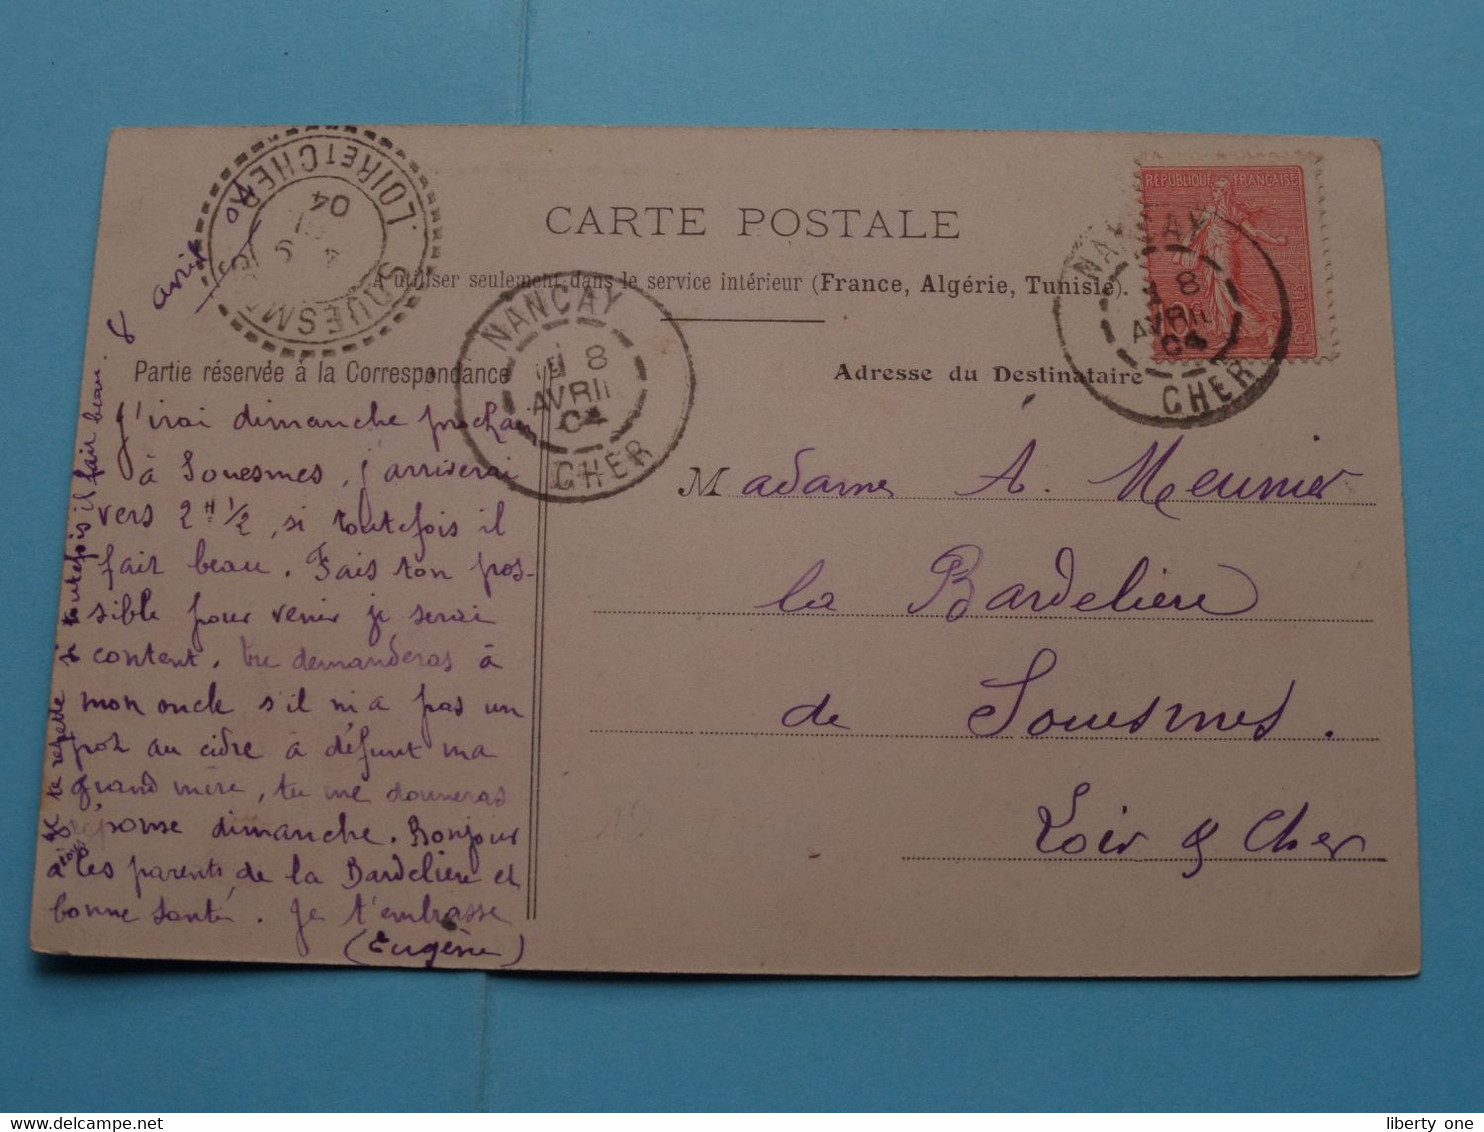 CARTE POSTALE
A utiliser seulement dans le service intérieur (France, Algérie, Tunisie).
Partie réservée à la Correspondance
Adresse du Destinataire
REPUBLIQUE FRANÇAISE
POSTES
LOIR ET CHER
SOUESMES
04
NANCAY
8
AVRIL
04
CHER
NANCAY
8
AVRIL
04
CHER
8 avril 04
J'irai dimanche prochain
à Souesmes, j'arriverai
vers 2H 1/2, si toutefois il
fait beau. Fais ton pos-
sible pour venir je serai
content. tu demanderas à
mon oncle s'il n'a pas un
pot au cidre à défunt ma
grand mère, tu me donneras
réponse dimanche. Bonjour
à tes parents de la Bardelière et
bonne santé. Je t'embrasse
(Eugène)
je te repette si toutefois il fait beau.
Madame A. Meunier
la Bardeliere
de Souesmes.
Loir & Cher
liberty one